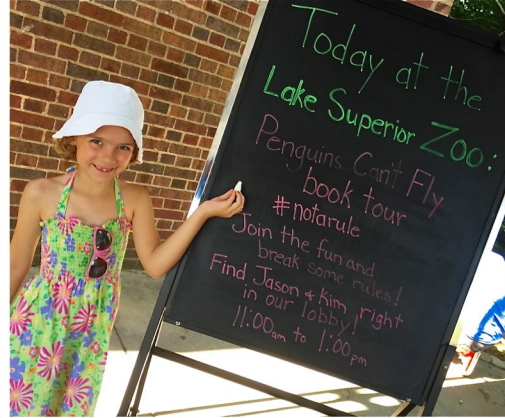 Today at the
Lake Superior Zoo:
Penguins Can't Fly
book tour
#notarule
Join the fun and
break some rules!
Find Jason & Kim right
in our lobby!
11:00am to 1:00pm